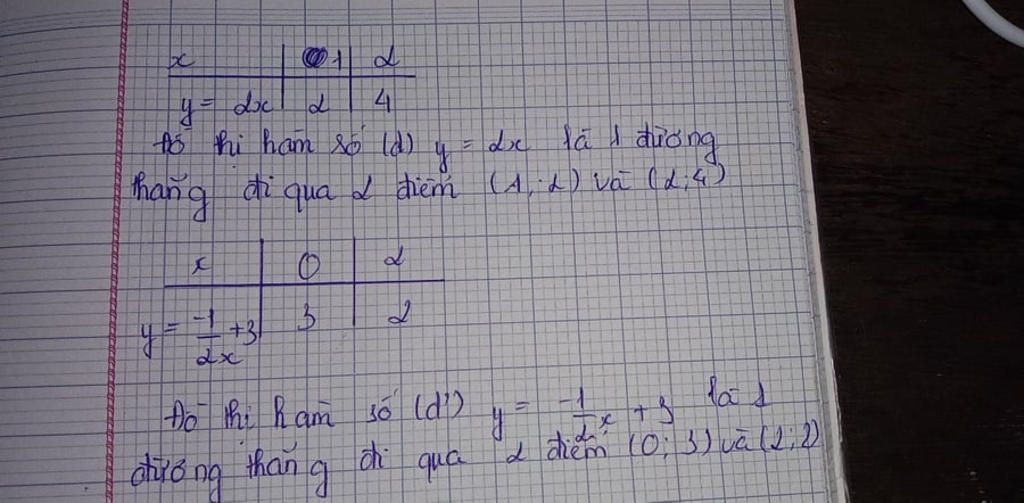 x | 1 | 2
y = 2x | 2 | 4
Đồ thị hàm số (d) y = 2x là 1 đường
thẳng đi qua 2 điểm (1; 2) và (2; 4)
x | 0 | 2
y = -1/2x +3 | 3 | 2
Đồ thị hàm số (d') y = -1/2 x + 3 là 1
đường thẳng đi qua 2 điểm (0; 3) và (2; 2)